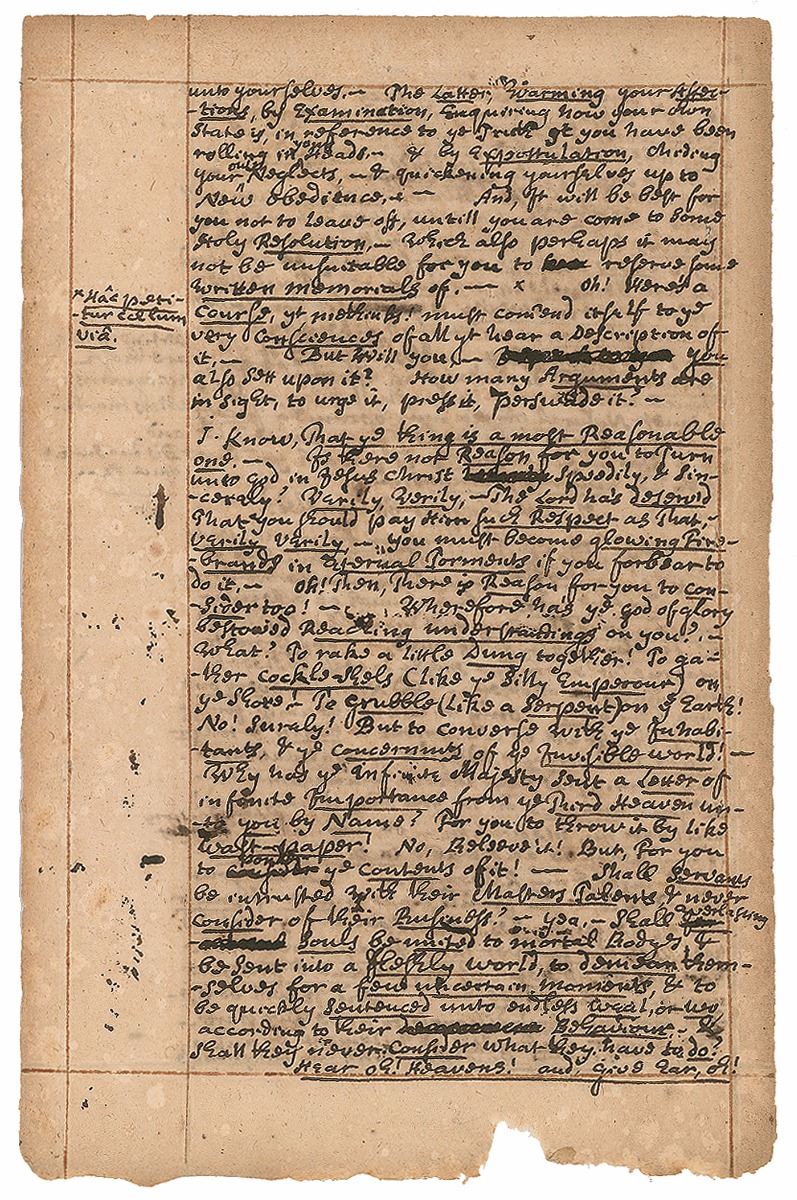 unto yourselves.— The Latter, Warming your Affec-
-tions, by Examination, Enquiring how your own
State is, in reference to ye Truth yt you have been
rolling in your Heads,— & by Expostulation, chiding
your own Neglects,— & quickening yourselves up to
New obedience,— And, It will be best for
you not to Leave off, untill you are come to Some
Holy Resolution,— Which also perhaps it may
not be unsuitable for you to reserve some
Written memorials of.— x Oh! Here's a
x Hâc peti-
-tur Cœlum
viâ.
Course, yt methinks! must comend itself to ye
very Consciences of all yt hear a Description of
it,— But Will you,— you
also sett upon it? How many Arguments are
in Sight, to urge it, press it, perswade it?—
I. Know, That ye thing is a most Reasonable
one.— Is there not Reason for you to Turn
unto God in Jesus Christ Speedily, & Sin-
-cerely? Verily, Verily,— The Lord has deserv'd
That you should pay Him such Respect as That,—
Verily Verily,— you must become glowing Fire-
-brands in Eternal Torments if you forbear to
do it,— Oh! Then, There is Reason for you to Con-
-sider too!— Wherefore has ye God of glory
bestowed Reaching understandings on you?,—
What? To rake a little Dung together! To ga-
-ther Cockle-shels (like ye Silly Emperour) on
ye Shore!— To grubble (like a Serpent) on ye Earth!
No! Surely! But to converse With ye Inhabi-
-tants, & ye concernmts of ye Invisible world!—
Why has ye Infinite Majesty sent a Letter of
infinite Importance from ye Third Heaven un-
-to you by Name? For you to throw it by like
Wast-paper! No, Beleeve it! But, For you
to ponder ye Contents of it!— Shall Servants
be intrusted With their Masters Talents, & never
Consider of their Business?— yea,— Shall Everlasting
Souls be united to mortal Bodyes, &
be sent into a fleshly world, to demean them-
-selves for a few uncertain moments, & to
be quickly Sentenced unto endless Weal, or wo
according to their Behaviour,— &
shall they never Consider what they have to do?
Hear oh! Heavens! and, give Ear, oh!